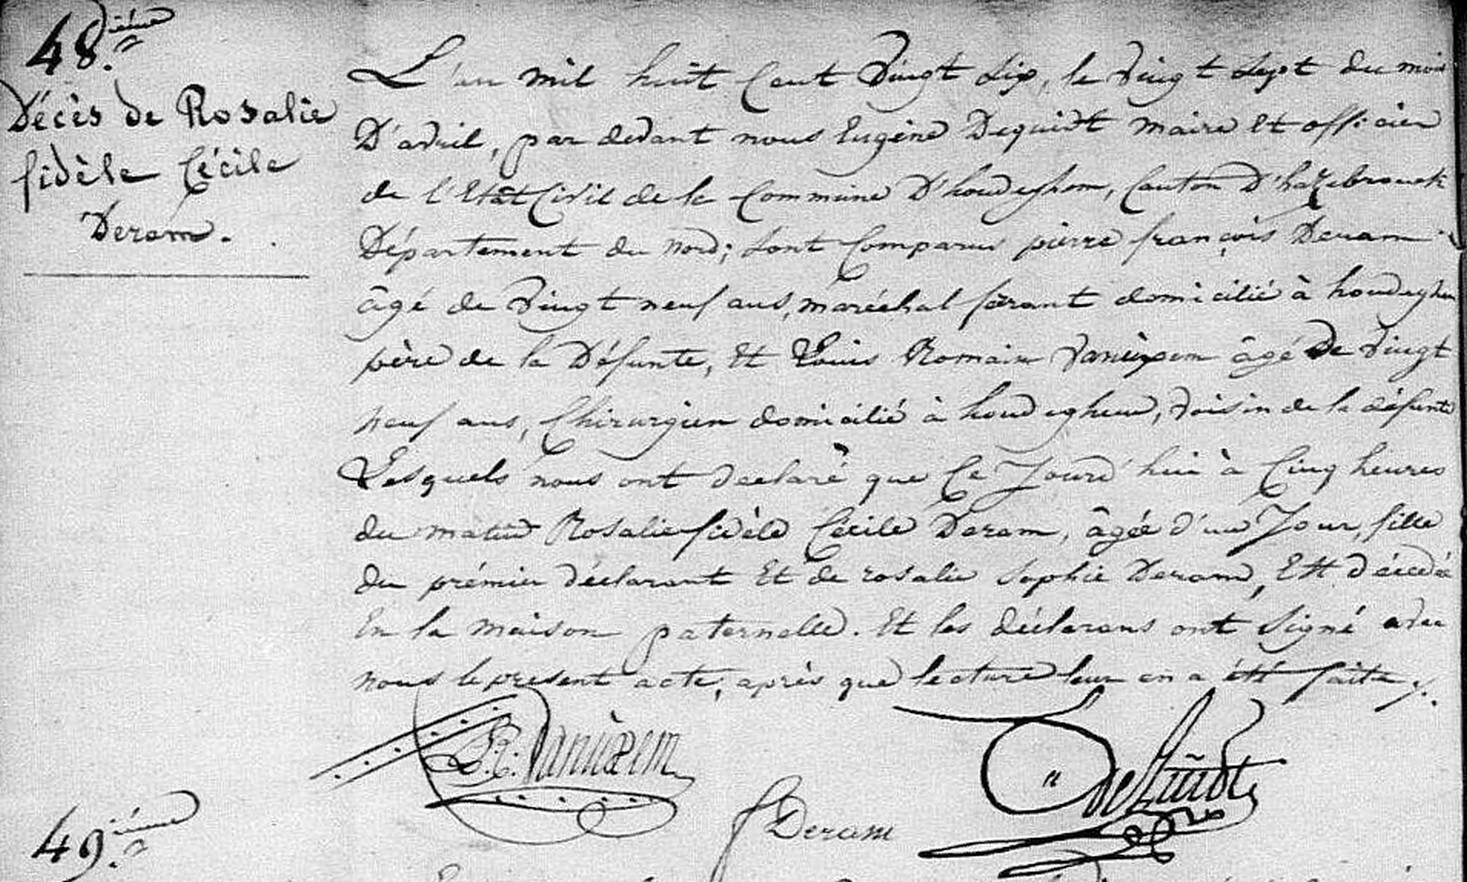 48.ième
Décès de Rosalie
fidèle Cécile
Deram.
L'an mil huit Cent Vingt Six, le Vingt Sept du mois
D'avril, par devant nous Eugène Dequidt maire Et officier
de l'Etat Civil de la Commune D'hondeghem, Canton D'hazebrouck
Département du Nord; Sont Comparus pierre françois Deram
âgé de Vingt neuf ans, maréchal férant domicilié à hondeghem
père de la Défunte, Et Louis Romain Vanuxem âgé De Vingt
neuf ans, Chirurgien domicilié à hondeghem, Voisin de la défunte
Lesquels nous ont déclaré que Ce Jourd'hui à Cinq heures
du matin Rosalie fidèle Cécile Deram, âgée d'un Jour, fille
du prémier déclarant Et de rosalie Sophie Deram, Est décédé
En la maison paternelle. Et les déclarans ont Signé avec
nous le present acte, après que lecture leur en a été faite
L.R. Vanuxem
DeQuidt
f Deram
49.ième